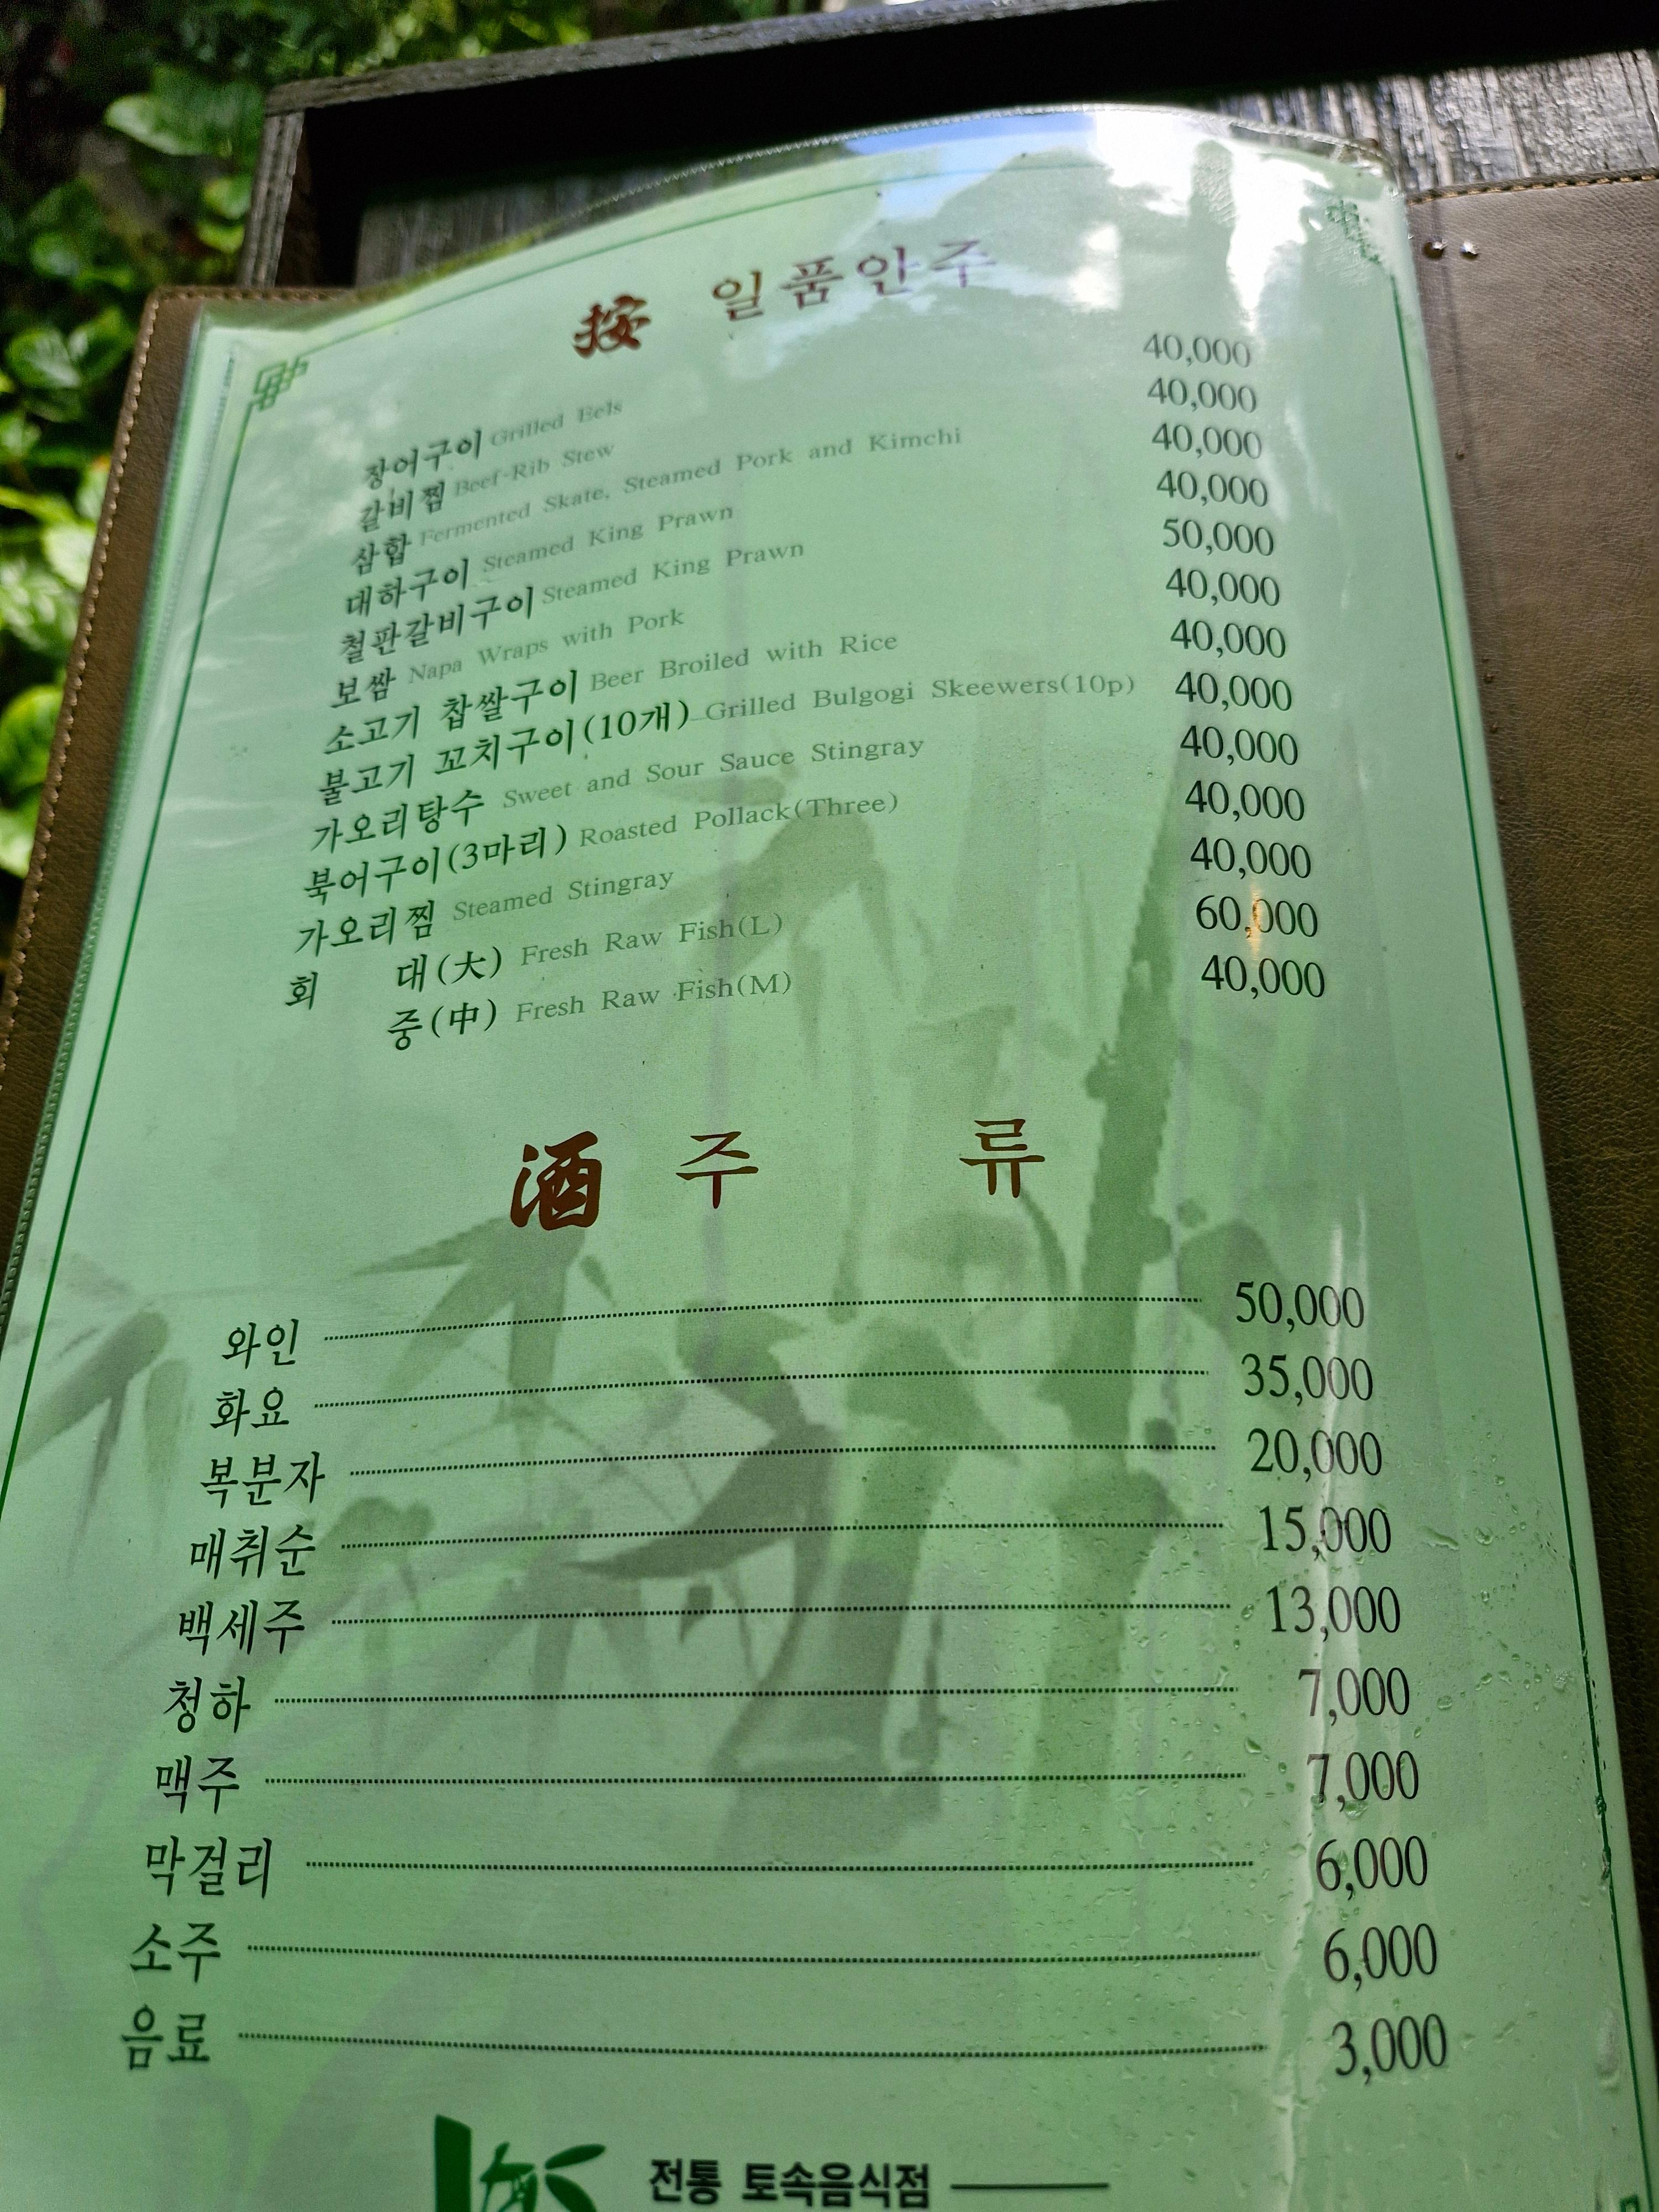 按 일품안주
장어구이 Grilled Eels 40,000
갈비찜 Beef-Rib Stew 40,000
삼합 Fermented Skate, Steamed Pork and Kimchi 40,000
대하구이 Steamed King Prawn 40,000
철판갈비구이 Steamed King Prawn 50,000
보쌈 Napa Wraps with Pork 40,000
소고기 찹쌀구이 Beer Broiled with Rice 40,000
불고기 꼬치구이(10개) Grilled Bulgogi Skeewers(10p) 40,000
가오리탕수 Sweet and Sour Sauce Stingray 40,000
북어구이(3마리) Roasted Pollack(Three) 40,000
가오리찜 Steamed Stingray 40,000
회 대(大) Fresh Raw Fish(L) 60,000
중(中) Fresh Raw Fish(M) 40,000
酒 주 류
와인 50,000
화요 35,000
복분자 20,000
매취순 15,000
백세주 13,000
청하 7,000
맥주 7,000
막걸리 6,000
소주 6,000
음료 3,000
전통 토속음식점